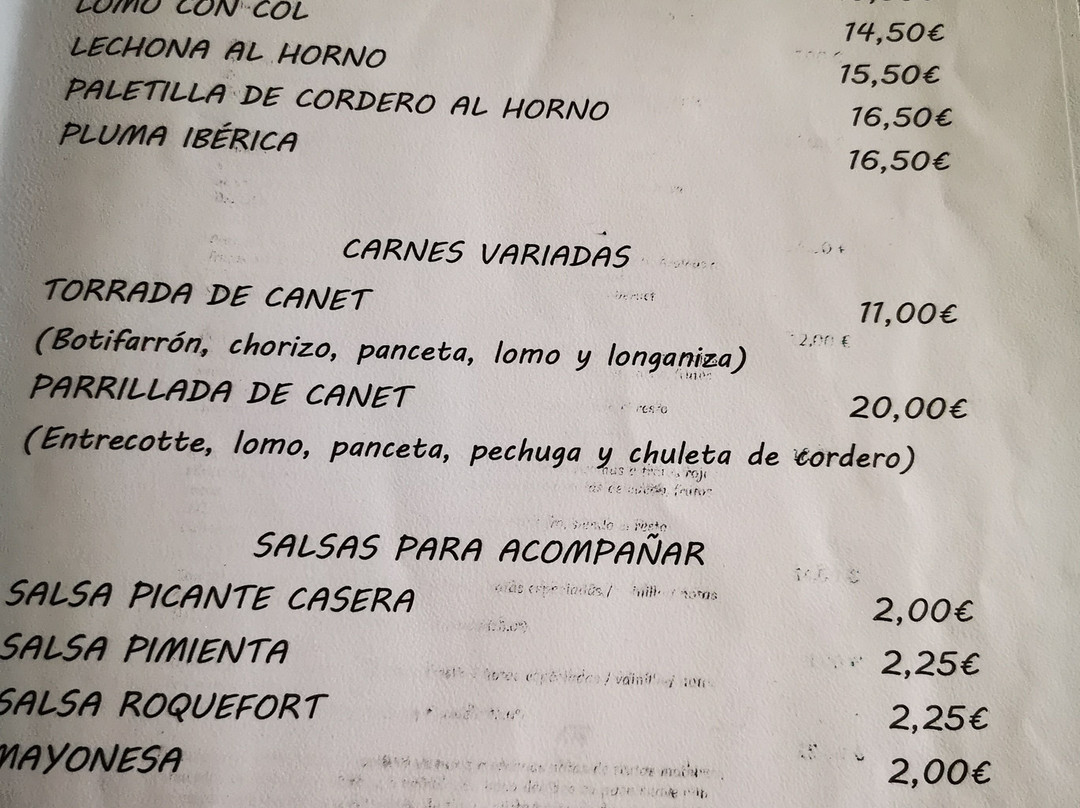 LOMO CON COL 14,50€
LECHONA AL HORNO 15,50€
PALETILLA DE CORDERO AL HORNO 16,50€
PLUMA IBÉRICA 16,50€
CARNES VARIADAS
TORRADA DE CANET 11,00€
(Botifarrón, chorizo, panceta, lomo y longaniza)
PARRILLADA DE CANET 20,00€
(Entrecotte, lomo, panceta, pechuga y chuleta de cordero)
SALSAS PARA ACOMPAÑAR
SALSA PICANTE CASERA 2,00€
SALSA PIMIENTA 2,25€
SALSA ROQUEFORT 2,25€
MAYONESA 2,00€